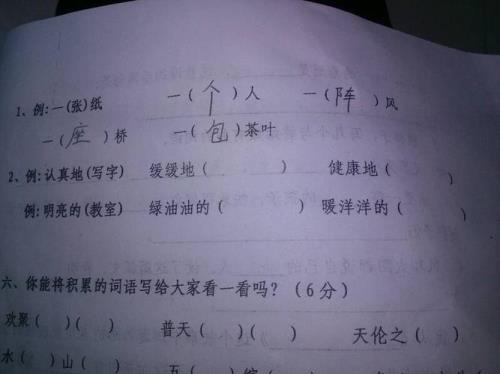 1、例:一(张)纸 一(个)人 一(阵)风
一(座)桥 一(包)茶叶
2、例:认真地(写字) 缓缓地( ) 健康地( )
例:明亮的(教室) 绿油油的( ) 暖洋洋的( )
六、你能将积累的词语写给大家看一看吗?(6分)
欢聚( )( ) 普天( )( ) 天伦之( )
水( )山( ) 五( )